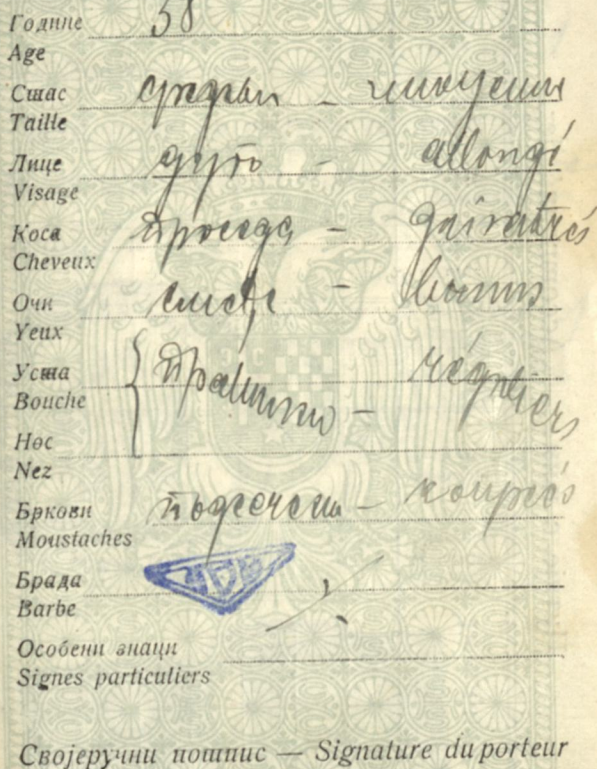 Године 58
Age
Стас средњи -
Taille
Лице дуго - allongé
Visage
Коса просед -
Cheveux
Очи -
Yeux
Уста правилно - réguliers
Bouche
Нос
Nez
Бркови подсечени - coupés
Moustaches
Брада
Barbe
Особени знаци
Signes particuliers
Својеручни потпис — Signature du porteur